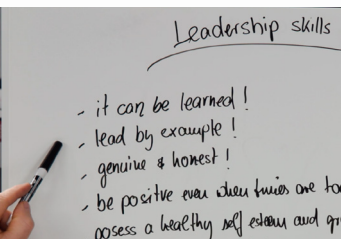 Leadership skills
- it can be learned !
- lead by example !
- genuine & honest !
- be positive even when times are
posess a healthy self esteem and